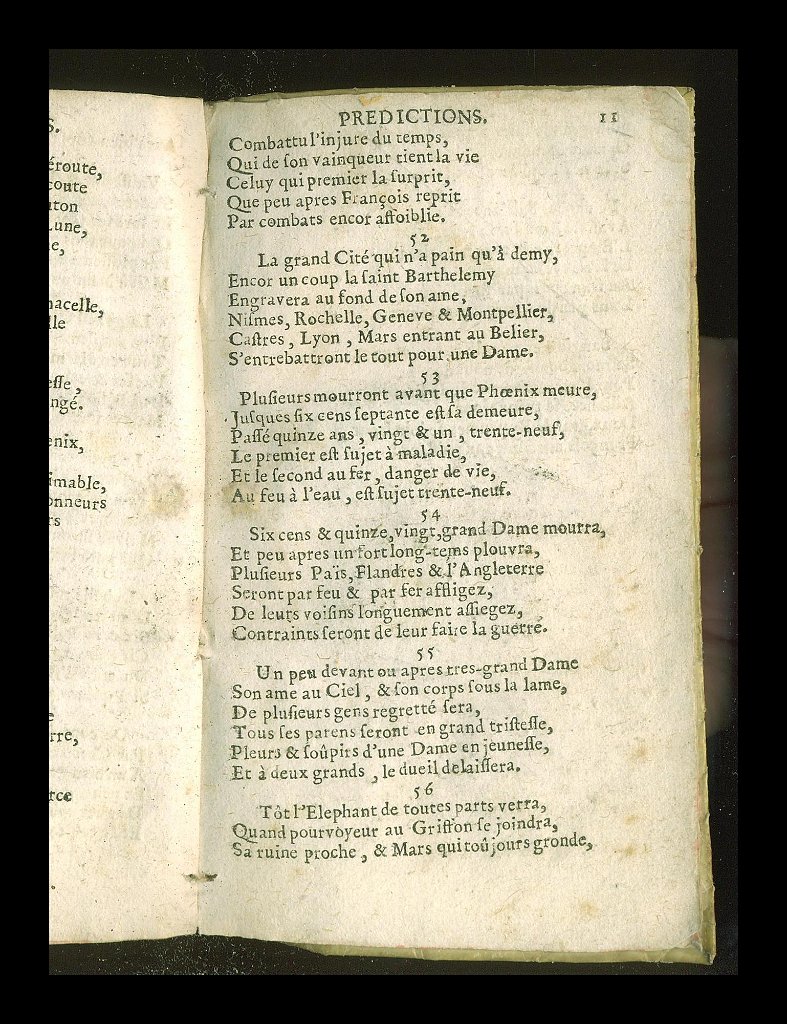 S.
éroute,
coute
ton
Lune,
e,
nacelle,
lle
esse,
ngé.
enix,
imable,
onneurs
rs
e
rre,
rce
PREDICTIONS. 11
Combattu l'injure du temps,
Qui de son vainqueur tient la vie
Celuy qui premier la surprit,
Que peu apres François reprit
Par combats encor affoiblie.
52
La grand Cité qui n'a pain qu'à demy,
Encor un coup la saint Barthelemy
Engravera au fond de son ame,
Nismes, Rochelle, Geneve & Montpellier,
Castres, Lyon, Mars entrant au Belier,
S'entrebattront le tout pour une Dame.
53
Plusieurs mourront avant que Phœnix meure,
Jusques six cens septante est sa demeure,
Passé quinze ans, vingt & un, trente-neuf,
Le premier est sujet à maladie,
Et le second au fer, danger de vie,
Au feu à l'eau, est sujet trente-neuf.
54
Six cens & quinze, vingt, grand Dame mourra,
Et peu apres un fort long-tems plouvra,
Plusieurs Païs, Flandres & l'Angleterre
Seront par feu & par fer affligez,
De leurs voisins longuement assiegez,
Contraints seront de leur faire la guerre.
55
Un peu devant ou apres tres-grand Dame
Son ame au Ciel, & son corps sous la lame,
De plusieurs gens regretté sera,
Tous ses parens seront en grand tristesse,
Pleurs & soûpirs d'une Dame en jeunesse,
Et à deux grands, le dueil delaissera.
56
Tôt l'Elephant de toutes parts verra,
Quand pourvoyeur au Griffon se joindra,
Sa ruine proche, & Mars qui toûjours gronde,